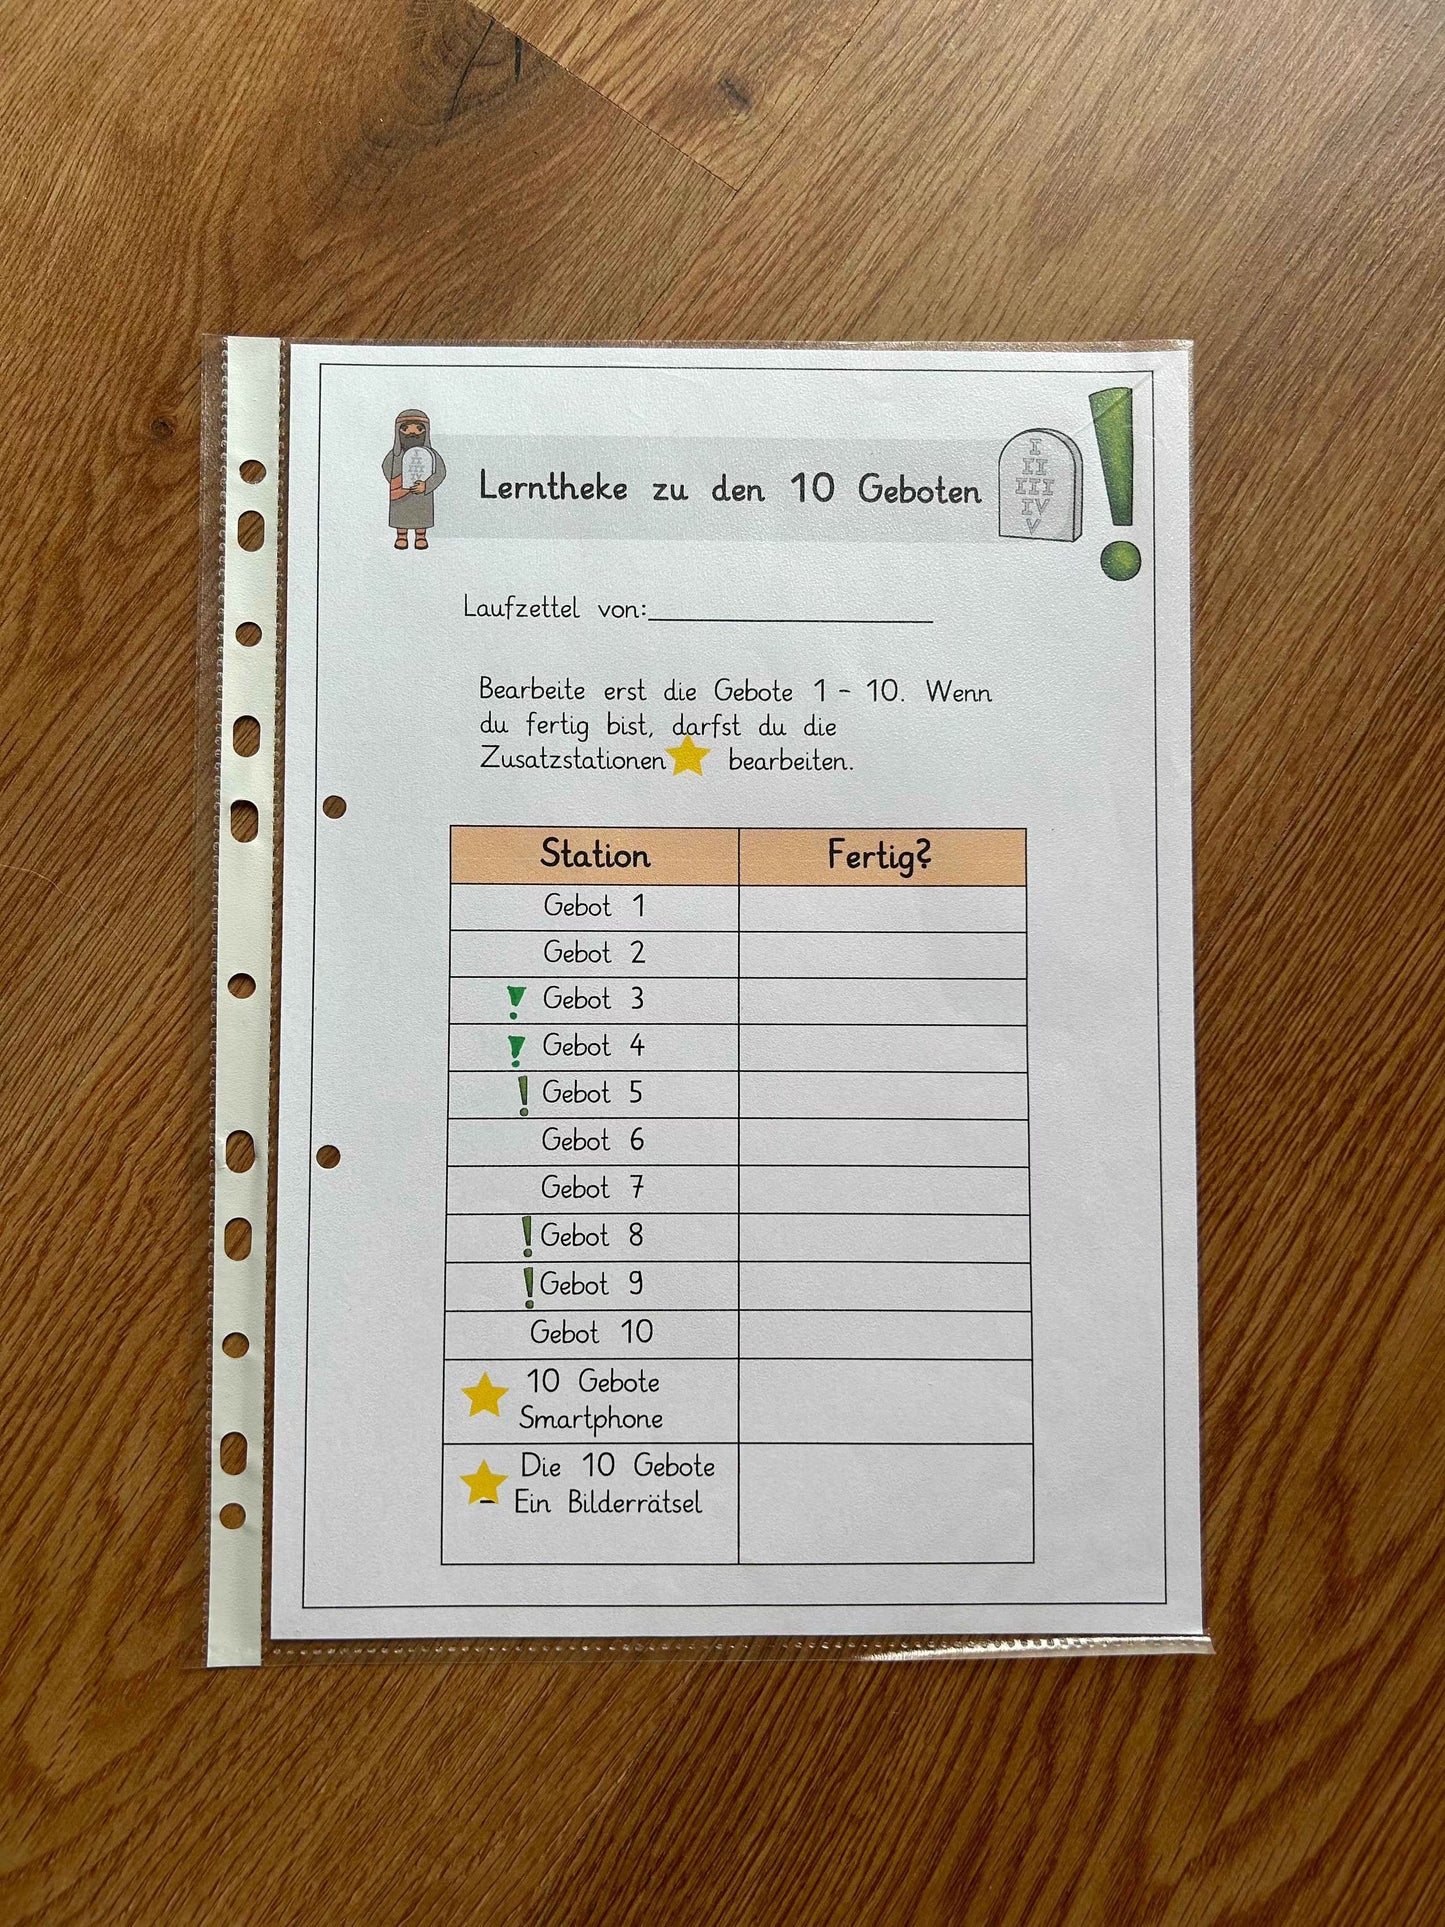 Lerntheke zu den 10 Geboten
I
II
III
IV
V
Laufzettel von:
Bearbeite erst die Gebote 1 - 10. Wenn
du fertig bist, darfst du die
Zusatzstationen bearbeiten.
Station Fertig?
Gebot 1
Gebot 2
! Gebot 3
! Gebot 4
! Gebot 5
Gebot 6
Gebot 7
! Gebot 8
! Gebot 9
Gebot 10
10 Gebote
Smartphone
Die 10 Gebote
- Ein Bilderrätsel